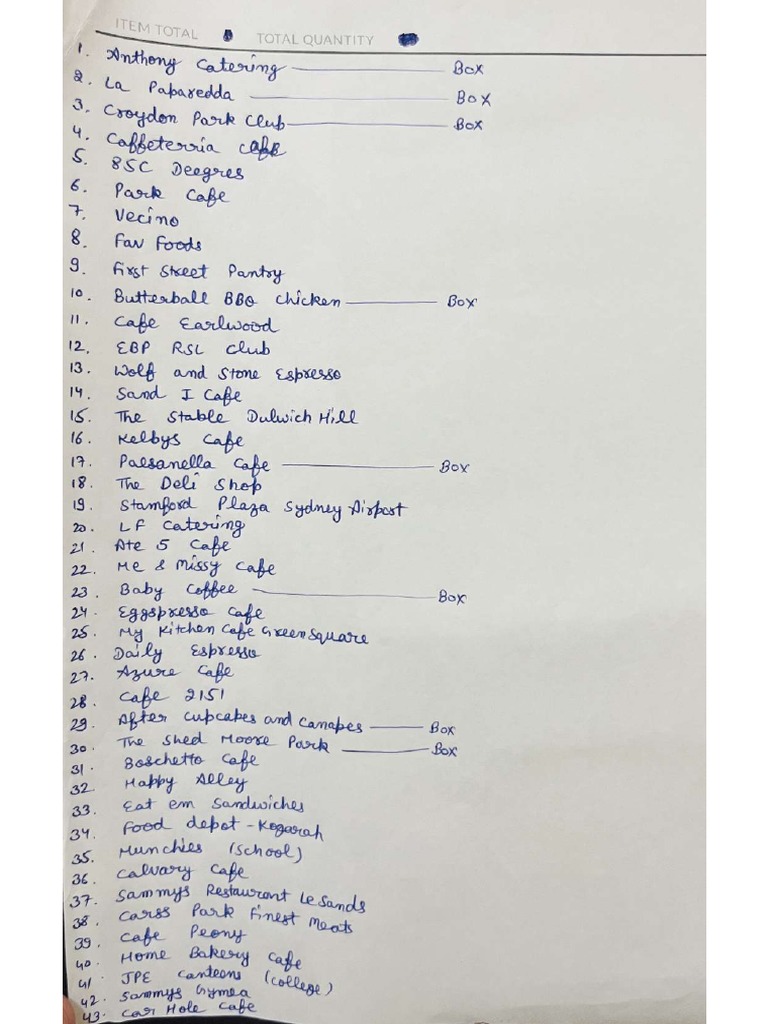 ITEM TOTAL TOTAL QUANTITY
1. Anthony Catering — Box
2. La Paparedda — Box
3. Croydon Park Club — Box
4. Caffeterria cafe
5. 85C Deegres
6. Park Cafe
7. Vecino
8. Fav Foods
9. First Street Pantry
10. Butterball BBQ Chicken — Box
11. Cafe Earlwood
12. EBP RSL Club
13. Wolf and Stone Espresso
14. Sand I Cafe
15. The Stable Dulwich Hill
16. Kelbys Cafe
17. Paesanella Cafe — Box
18. The Deli Shop
19. Stamford Plaza Sydney Airport
20. LF Catering
21. Ate 5 Cafe
22. Me & Missy Cafe
23. Baby Coffee — Box
24. Eggspresso Cafe
25. My Kitchen Cafe Green Square
26. Daily Espresso
27. Azure Cafe
28. Cafe 2151
29. After Cupcakes and Canapes — Box
30. The Shed Moore Park — Box
31. Boschetto Cafe
32. Happy Alley
33. Eat em Sandwiches
34. Food depot - Kogarah
35. Munchies (School)
36. Calvary Cafe
37. Sammys Restaurant Le Sands
38. Carss Park Finest Meats
39. Cafe Peony
40. Home Bakery Cafe
41. JPE Canteens (College)
42. Sammys Gymea
43. Car Hole Cafe